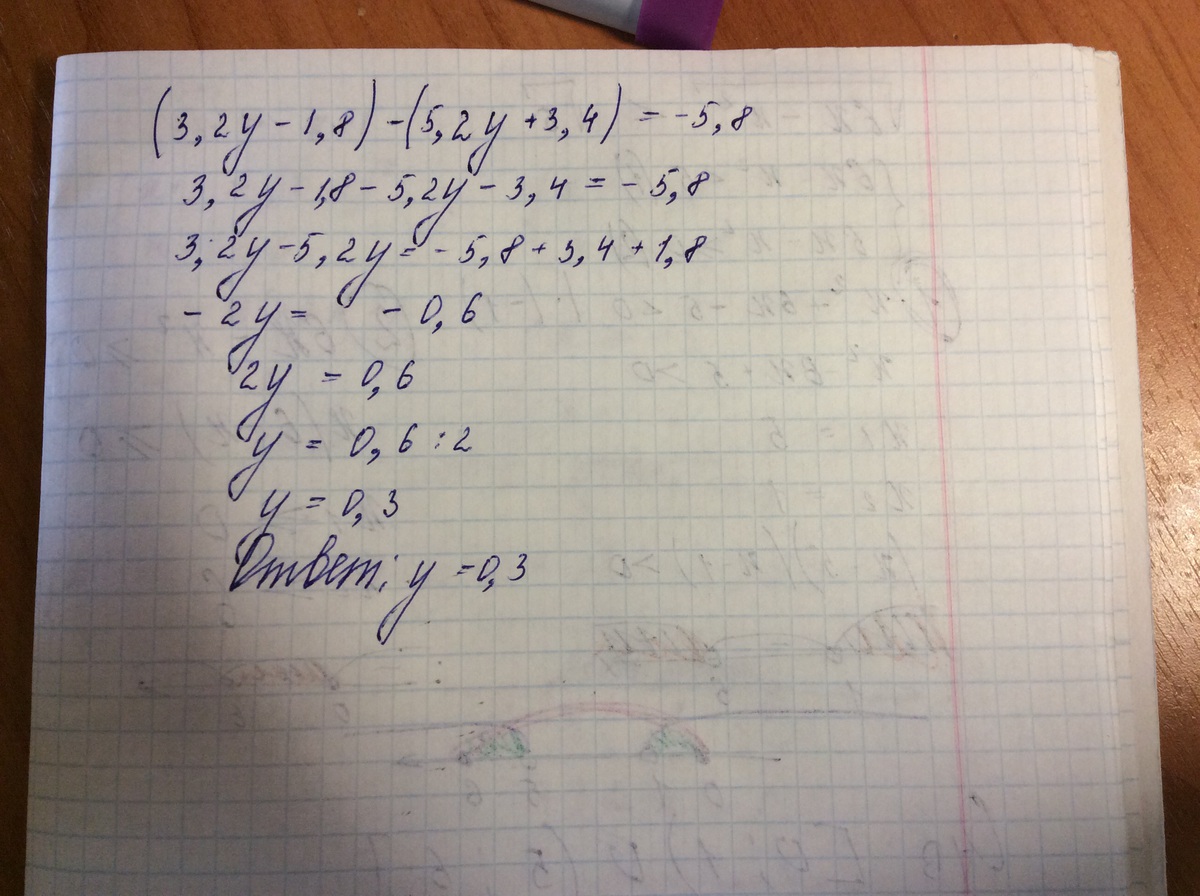 (3,2y-1,8)-(5,2y+3,4)=-5,8
3,2y-1,8-5,2y-3,4=-5,8
3,2y-5,2y=-5,8+3,4+1,8
-2y= -0,6
2y=0,6
y=0,6:2
y=0,3
Ответ: y=0,3